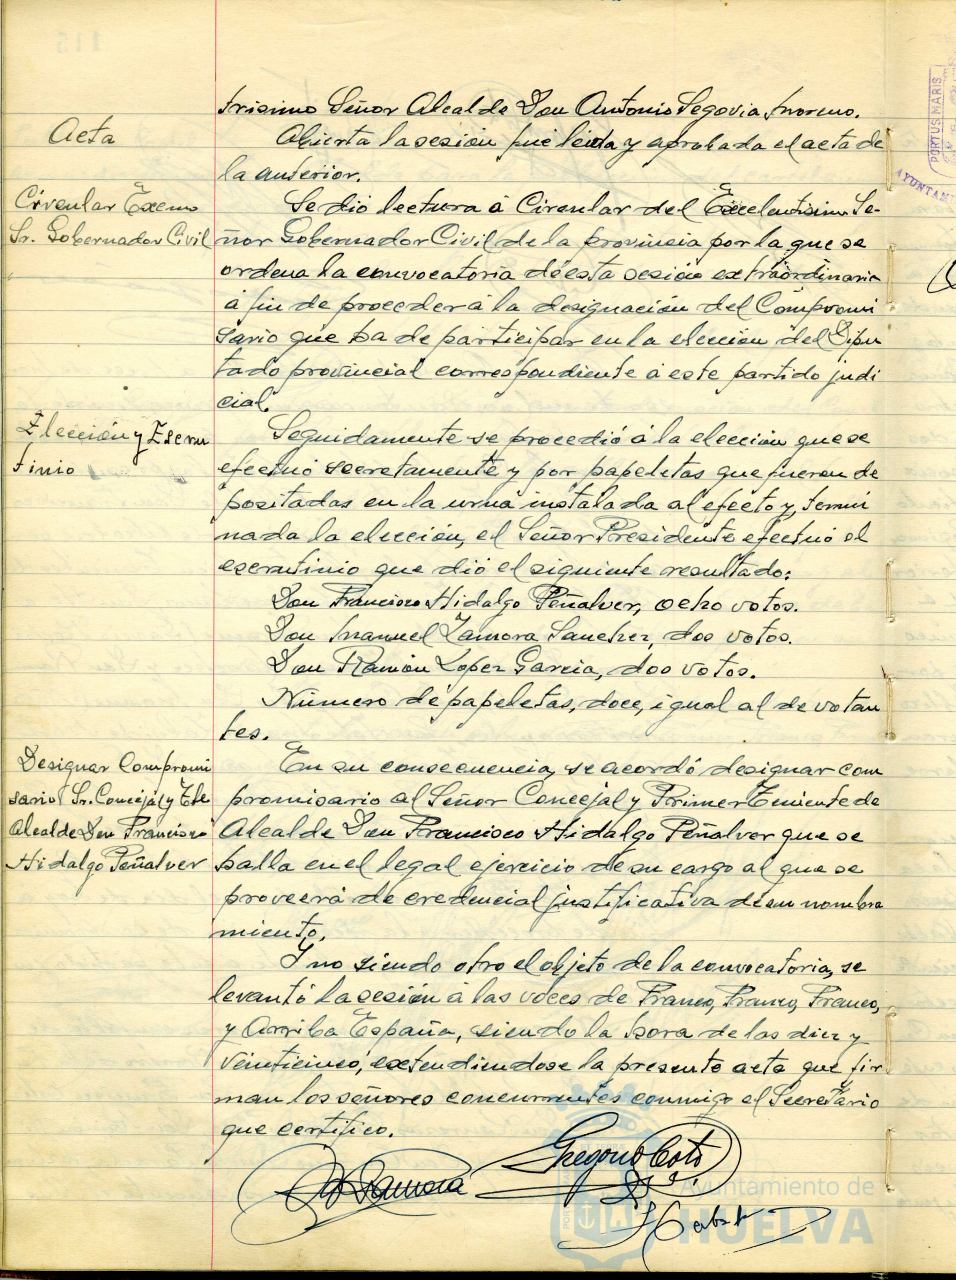 trisimo Señor Alcalde Don Antonio Segovia Moreno.
Acta
Abierta la sesión fué leida y aprobada el acta de
la anterior.
Circular Excmo
Sr. Gobernador Civil
Se dió lectura á Circular del Excelentisimo Se-
ñor Gobernador Civil de la provincia por la que se
ordena la convocatoria de esta sesión extraordinaria
á fin de proceder á la designación del Compromi
sario que ha de participar en la elección del Dipu
tado provincial correspondiente á este partido judi
cial.
Elección y Escru
tinio
Seguidamente se procedió á la elección que se
efectuó secretamente y por papeletas que fueron de
positadas en la urna instalada al efecto y, termi
nada la elección, el Señor Presidente efectuó el
escrutinio que dió el siguiente resultado:
Don Francisco Hidalgo Peñalver, ocho votos.
Don Manuel Zamora Sanchez, dos votos.
Don Ramón Lopez Garcia, dos votos.
Número de papeletas, doce, igual al de votan
tes.
Designar Compromi
sario Sr. Concejal y Tte
Alcalde Don Francisco
Hidalgo Peñalver
En su consecuencia, se acordó designar com
promisario al Señor Concejal y Primer Teniente de
Alcalde Don Francisco Hidalgo Peñalver que se
halla en el legal ejercicio de su cargo al que se
proveerá de credencial justificativa de su nombra
miento.
Y no siendo otro el objeto de la convocatoria, se
levantó la sesión á las voces de Franco, Franco, Franco,
y Arriba España, siendo la hora de las diez y
veinticinco, extendiendose la presente acta que fir
man los señores concurrentes conmigo el Secretario
que certifico.
Zamora
Gregorio Coto
Ayuntamiento de
HUELVA
PORTUS MARIS
AYUNTAM
115